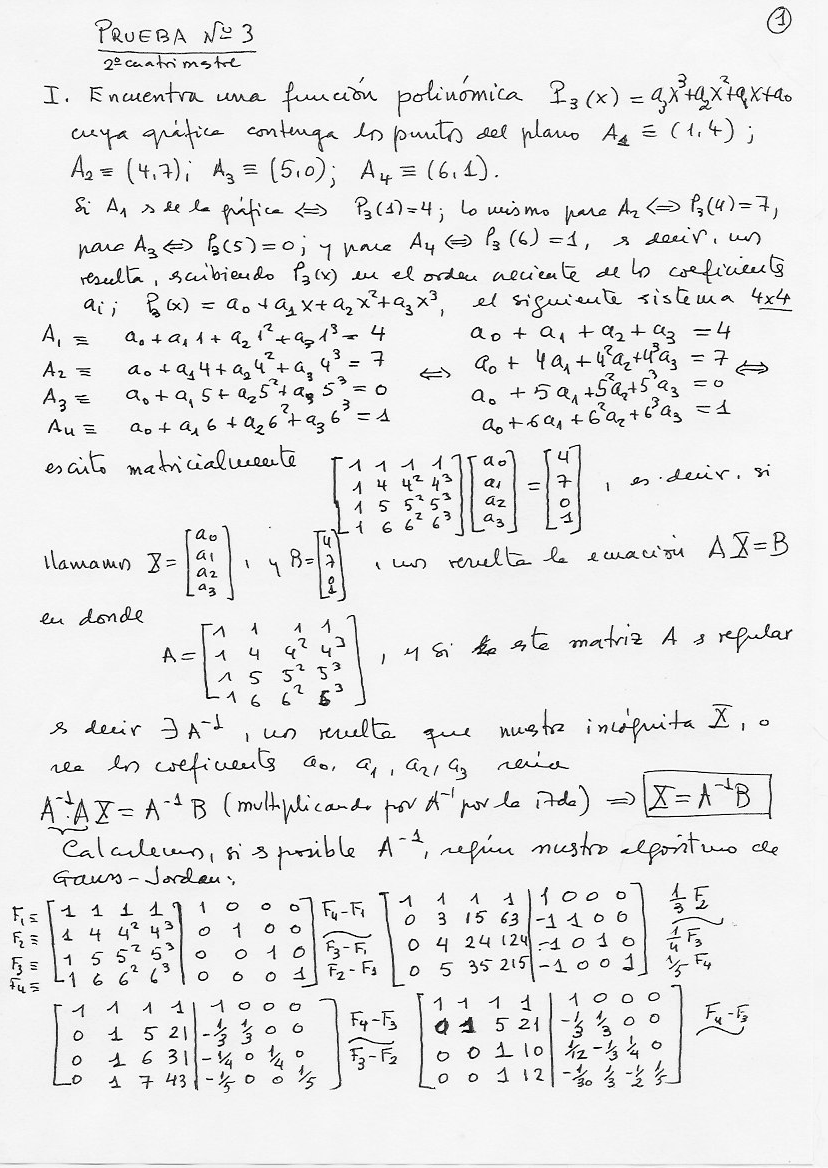 ①
PRUEBA Nº 3
2º cuatrimestre
I. Encuentra una función polinómica P₃(x) = a₃x³+a₂x²+a₁x+a₀
cuya gráfica contenga los puntos del plano A₁ ≡ (1,4);
A₂ ≡ (4,7); A₃ ≡ (5,0); A₄ ≡ (6,1).
Si A₁ es de la gráfica ⇔ P₃(1)=4; lo mismo para A₂ ⇔ P₃(4)=7,
para A₃ ⇔ P₃(5)=0; y para A₄ ⇔ P₃(6)=1, es decir, nos
resulta, escribiendo P₃(x) en el orden creciente de los coeficientes
aᵢ; P₃(x) = a₀+a₁x+a₂x²+a₃x³, el siguiente sistema 4x4
A₁ ≡ a₀+a₁1+a₂1²+a₃1³ = 4 a₀ + a₁ + a₂ + a₃ = 4
A₂ ≡ a₀+a₁4+a₂4²+a₃4³ = 7 ⇔ a₀ + 4a₁+4²a₂+4³a₃ = 7 ⇔
A₃ ≡ a₀+a₁5+a₂5²+a₃5³ = 0 a₀ + 5a₁+5²a₂+5³a₃ = 0
A₄ ≡ a₀+a₁6+a₂6²+a₃6³ = 1 a₀+6a₁+6²a₂+6³a₃ = 1
escrito matricialmente [1 1 1 1; 1 4 4² 4³; 1 5 5² 5³; 1 6 6² 6³] [a₀; a₁; a₂; a₃] = [4; 7; 0; 1], es decir, si
llamamos X = [a₀; a₁; a₂; a₃], y B = [4; 7; 0; 1], nos resulta la ecuación AX=B
en donde
A = [1 1 1 1; 1 4 4² 4³; 1 5 5² 5³; 1 6 6² 6³], y si este matriz A es regular
es decir ∃ A⁻¹, nos resulta que nuestra incógnita X, o
sea los coeficientes a₀, a₁, a₂, a₃ sería
A⁻¹·AX = A⁻¹B (multiplicando por A⁻¹ por la izda) ⇒ X = A⁻¹B
Calculemos, si es posible A⁻¹, según nuestro algoritmo de
Gauss-Jordan:
F₁≡ 1 1 1 1 | 1 0 0 0 F₄-F₁ 1 1 1 1 | 1 0 0 0 1/3 F₂
F₂≡ 1 4 4² 4³ | 0 1 0 0 0 3 15 63 | -1 1 0 0
F₃≡ 1 5 5² 5³ | 0 0 1 0 F₃-F₁ 0 4 24 124 | -1 0 1 0 1/4 F₃
F₄≡ 1 6 6² 6³ | 0 0 0 1 F₂-F₁ 0 5 35 215 | -1 0 0 1 1/5 F₄
1 1 1 1 | 1 0 0 0 1 1 1 1 | 1 0 0 0
0 1 5 21 | -1/3 1/3 0 0 F₄-F₃ 0 1 5 21 | -1/3 1/3 0 0 F₄-F₃
0 1 6 31 | -1/4 0 1/4 0 F₃-F₂ 0 0 1 10 | 1/12 -1/3 1/4 0
0 1 7 43 | -1/5 0 0 1/5 0 0 1 12 | -1/30 1/3 -1/2 1/5